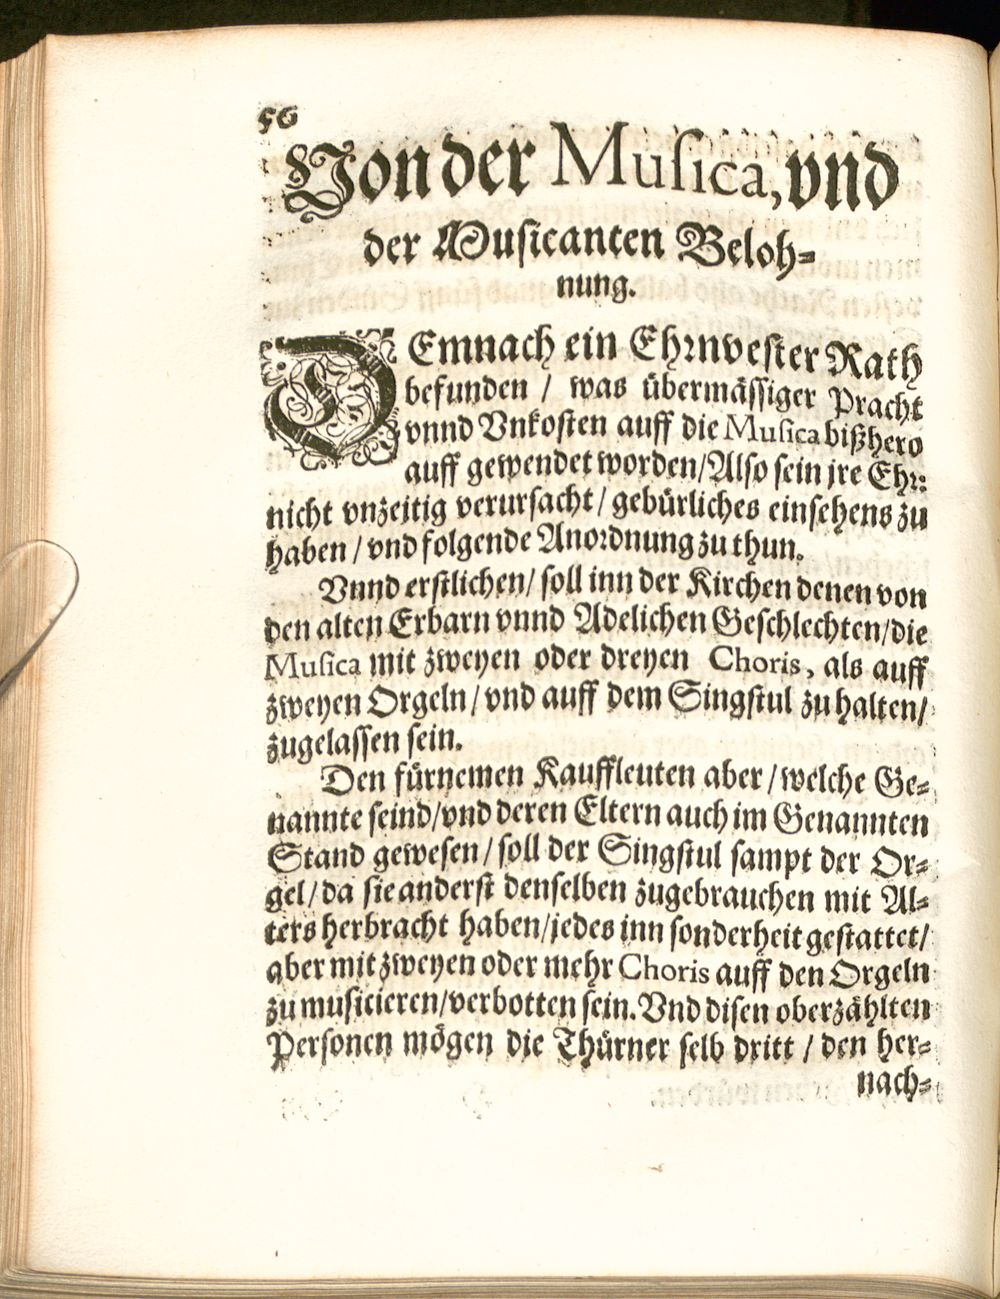 56
Von der Muſica, vnd
der Muſicanten Beloh⸗
nung.
DEmnach ein Ehrnveſter Rath
befunden / was übermäſſiger Pracht
vnnd Vnkoſten auff die Muſica bißhero
auff gewendet worden/Alſo ſein jre Ehr:
nicht vnzeitig verurſacht / gebürliches einſehens zu
haben / vnd folgende Anordnung zu thun.
Vnnd erſtlichen/ ſoll inn der Kirchen denen von
den alten Erbarn vnnd Adelichen Geſchlechten/die
Muſica mit zweyen oder dreyen Choris, als auff
zweyen Orgeln / vnd auff dem Singſtul zu halten/
zugelaſſen ſein.
Den fürnemen Kauffleuten aber / welche Ge⸗
nannte ſeind/vnd deren Eltern auch im Genannten
Stand geweſen / ſoll der Singſtul ſampt der Or⸗
gel / da ſie anderſt denſelben zugebrauchen mit Al⸗
ters herbracht haben/jedes inn ſonderheit geſtattet/
aber mit zweyen oder mehr Choris auff den Orgeln
zu muſicieren/verbotten ſein. Vnd diſen oberzählten
Perſonen mögen die Thürner ſelb dritt / den her⸗
nach⸗